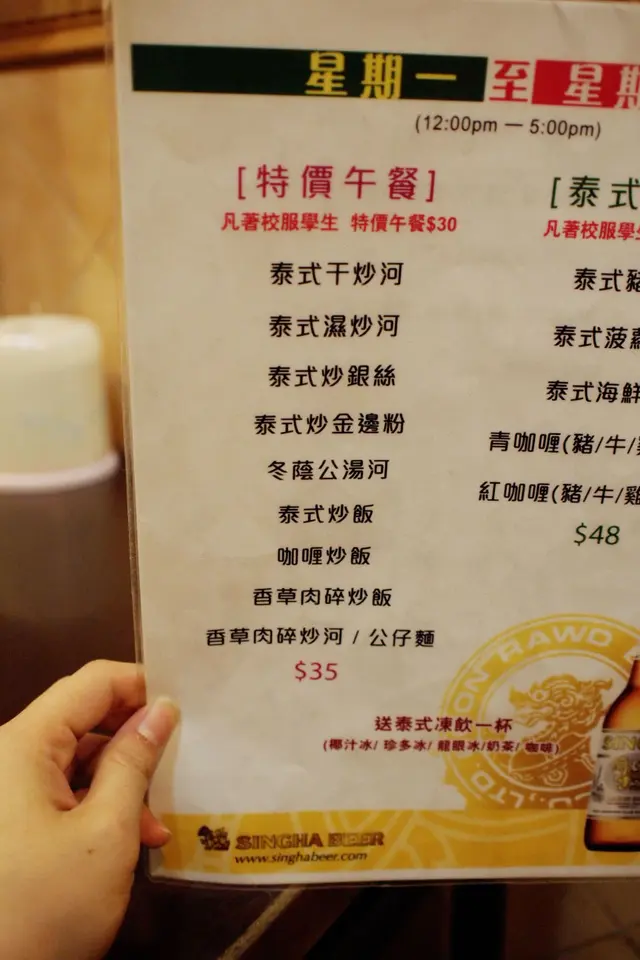 星期一 至 星期
(12:00pm — 5:00pm)
[特價午餐]
凡著校服學生 特價午餐$30
泰式干炒河
泰式濕炒河
泰式炒銀絲
泰式炒金邊粉
冬蔭公湯河
泰式炒飯
咖喱炒飯
香草肉碎炒飯
香草肉碎炒河 / 公仔麵
$35
[泰式
凡著校服學生
泰式豬
泰式菠蘿
泰式海鮮
青咖喱(豬/牛/雞
紅咖喱(豬/牛/雞
$48
送泰式凍飲一杯
(椰汁冰/ 珍多冰/ 龍眼冰/奶茶/ 咖啡)
ON RAWD
CO.,LTD.
SINGHA BEER
www.singhabeer.com